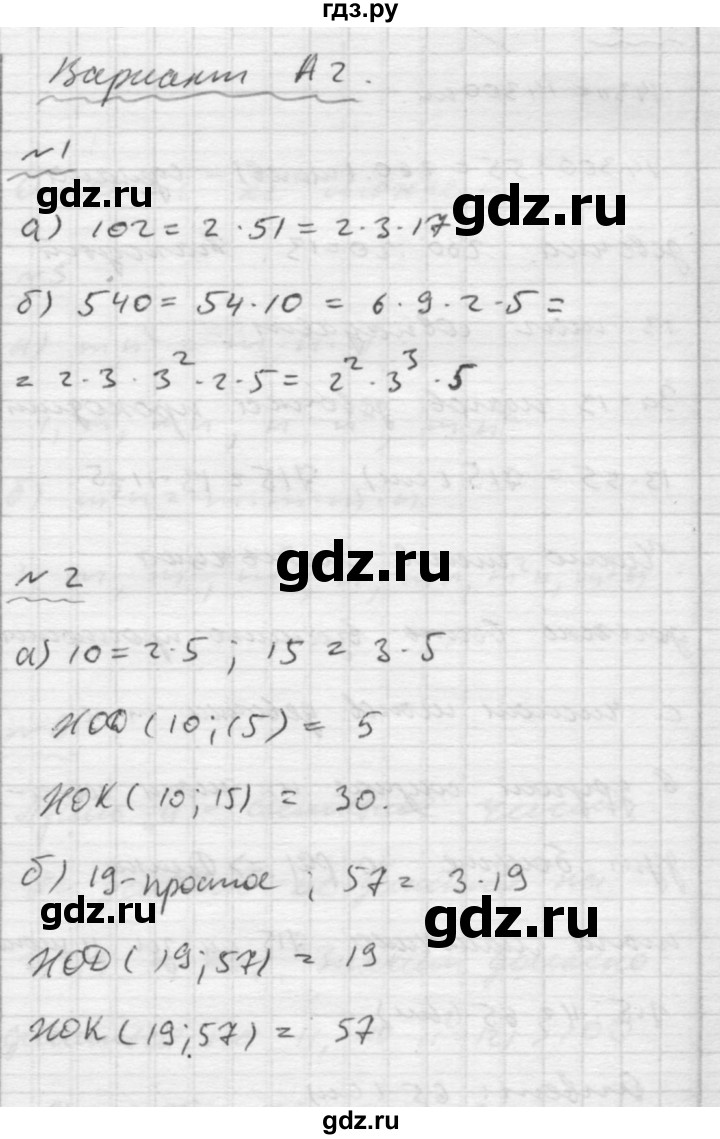 гдз.ру
Вариант А2.
№1
gdz.ru
gdz.ru
а) 102 = 2 · 51 = 2 · 3 · 17
б) 540 = 54 · 10 = 6 · 9 · 2 · 5 =
= 2 · 3 · 3² · 2 · 5 = 2² · 3³ · 5
gdz.ru
№2
а) 10 = 2 · 5 ; 15 = 3 · 5
НОД (10; 15) = 5
НОК (10; 15) = 30.
б) 19 - простое ; 57 = 3 · 19
gdz.ru
gdz.ru
НОД (19; 57) = 19
НОК (19; 57) = 57
gdz.ru